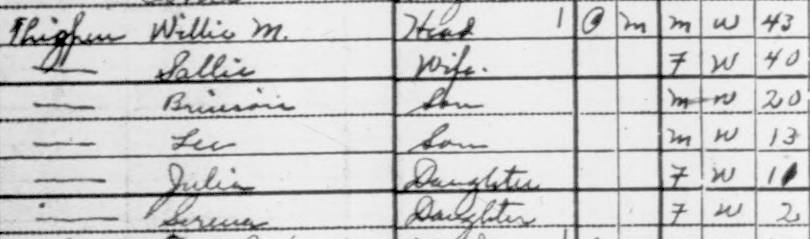 Thigpen Willie M. Head 1 O M M W 43
— Sallie Wife. F W 40
— Brinson Son M W 20
— Lee Son M W 13
— Julia Daughter F W 11
— Serena Daughter F W 2